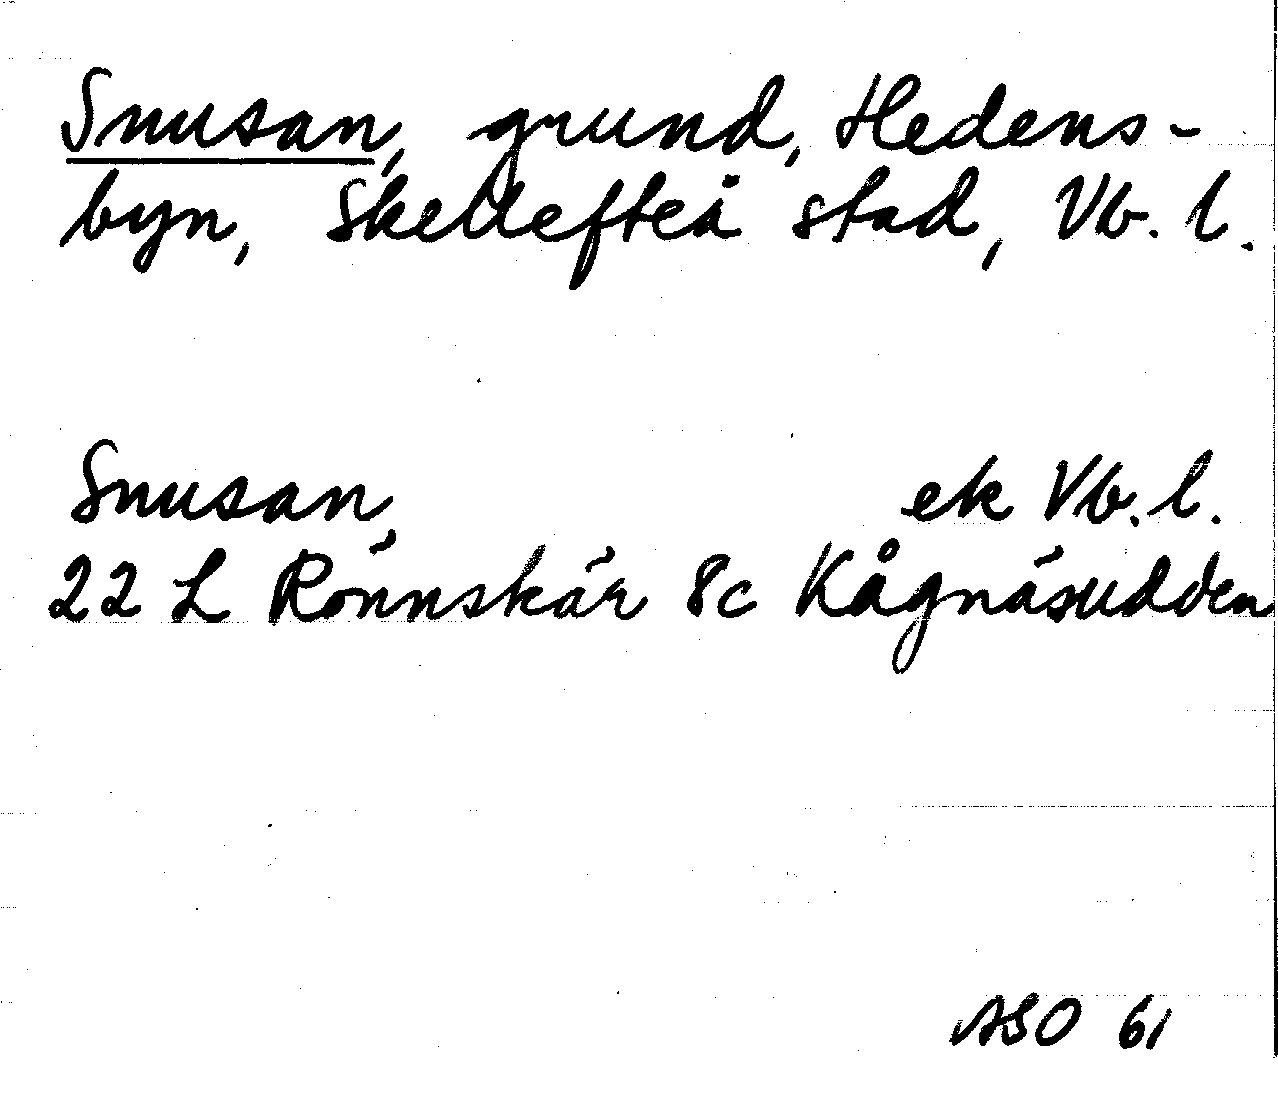 Snusan, grund, Hedens-
byn, Skellefteå stad, Vb. l.
Snusan, ek Vb. l.
22 L Rönnskär 8c Kågnäsudden
ASO 61